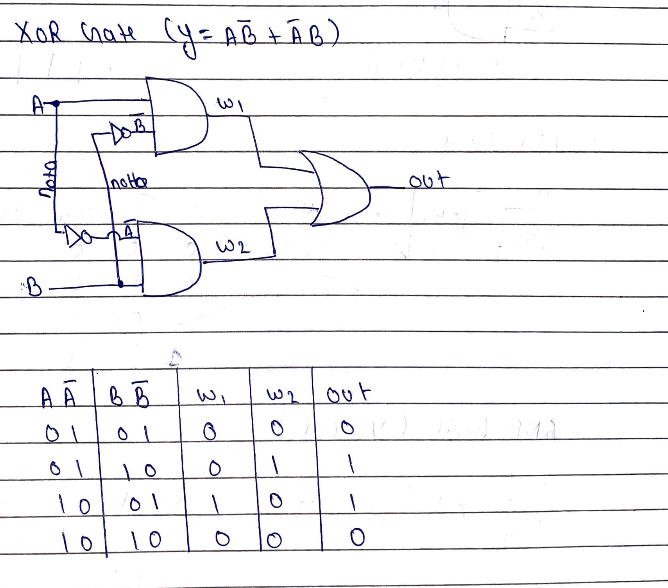 XOR Gate (y = AB̅ + A̅B)
A
W1
B̅
nota
notb
out
A̅
W2
B
A A̅ B B̅ W1 W2 out
0 1 0 1 0 0 0
0 1 1 0 0 1 1
1 0 0 1 1 0 1
1 0 1 0 0 0 0